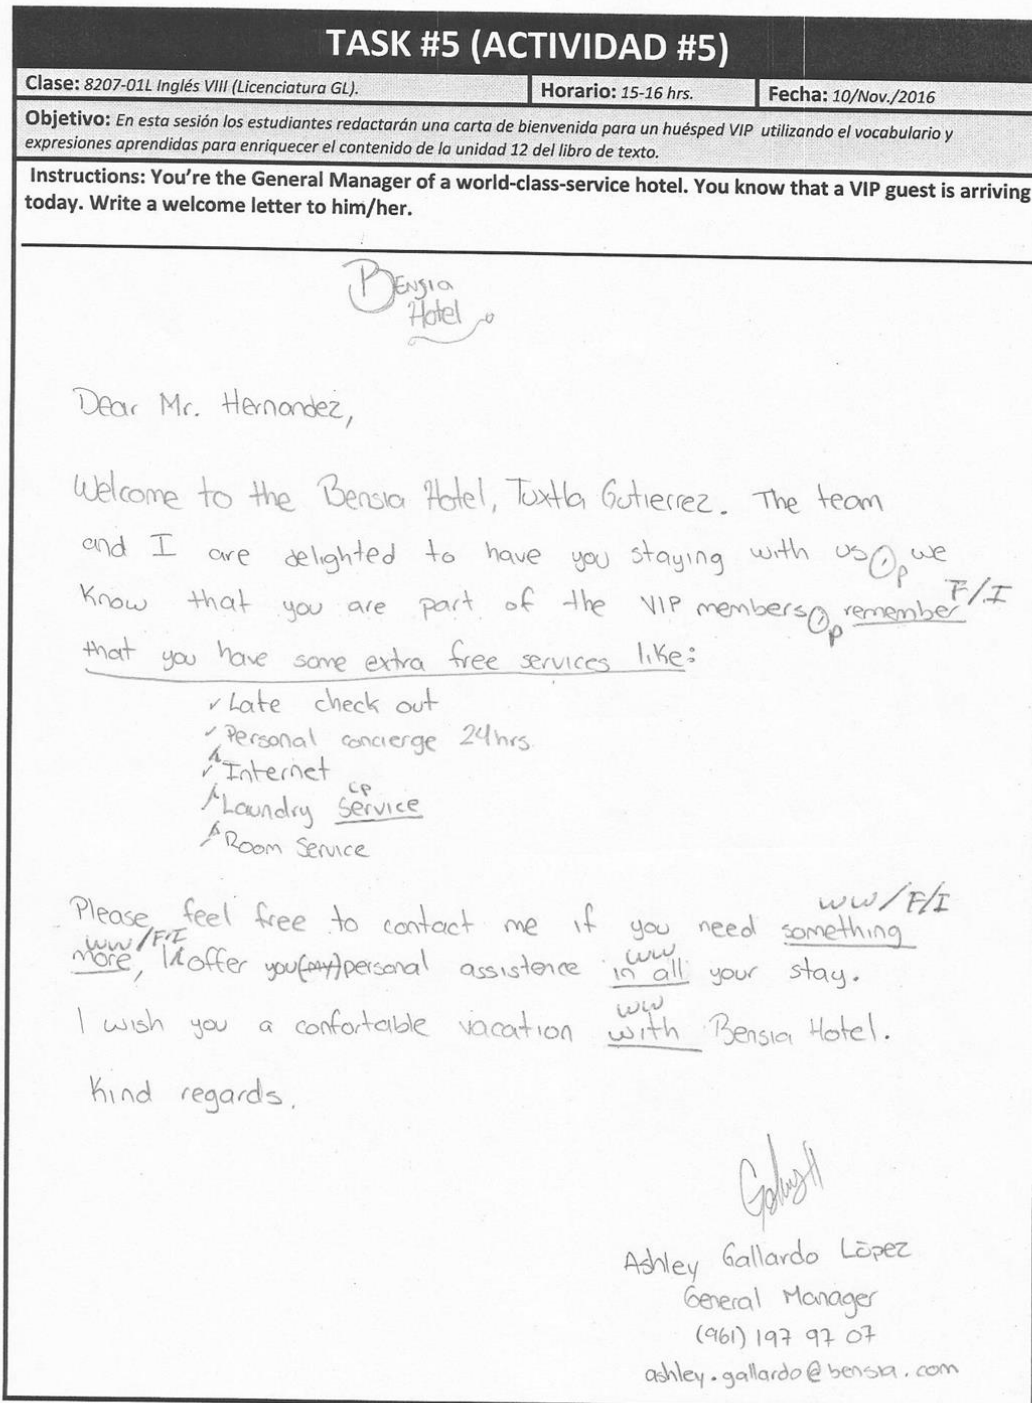 TASK #5 (ACTIVIDAD #5)
Clase: 8207-01L Inglés VIII (Licenciatura GL). Horario: 15-16 hrs. Fecha: 10/Nov./2016
Objetivo: En esta sesión los estudiantes redactarán una carta de bienvenida para un huésped VIP utilizando el vocabulario y
expresiones aprendidas para enriquecer el contenido de la unidad 12 del libro de texto.
Instructions: You're the General Manager of a world-class-service hotel. You know that a VIP guest is arriving
today. Write a welcome letter to him/her.
Bensia
Hotel
Dear Mr. Hernandez,
Welcome to the Bensia Hotel, Tuxtla Gutierrez. The team
and I are delighted to have you staying with us, we
P
F/I
know that you are part of the VIP members, remember
P
that you have some extra free services like:
✓ Late check out
✓ Personal concierge 24hrs.
✓ Internet
CP
Laundry Service
Room Service
WW/F/I
Please, feel free to contact me if you need something
WW/F.I WW
more, offer you personal assistence in all your stay.
WW
I wish you a confortable vacation with Bensia Hotel.
Kind regards.
Ashley Gallardo López
General Manager
(961) 197 97 07
ashley.gallardo@bensia.com